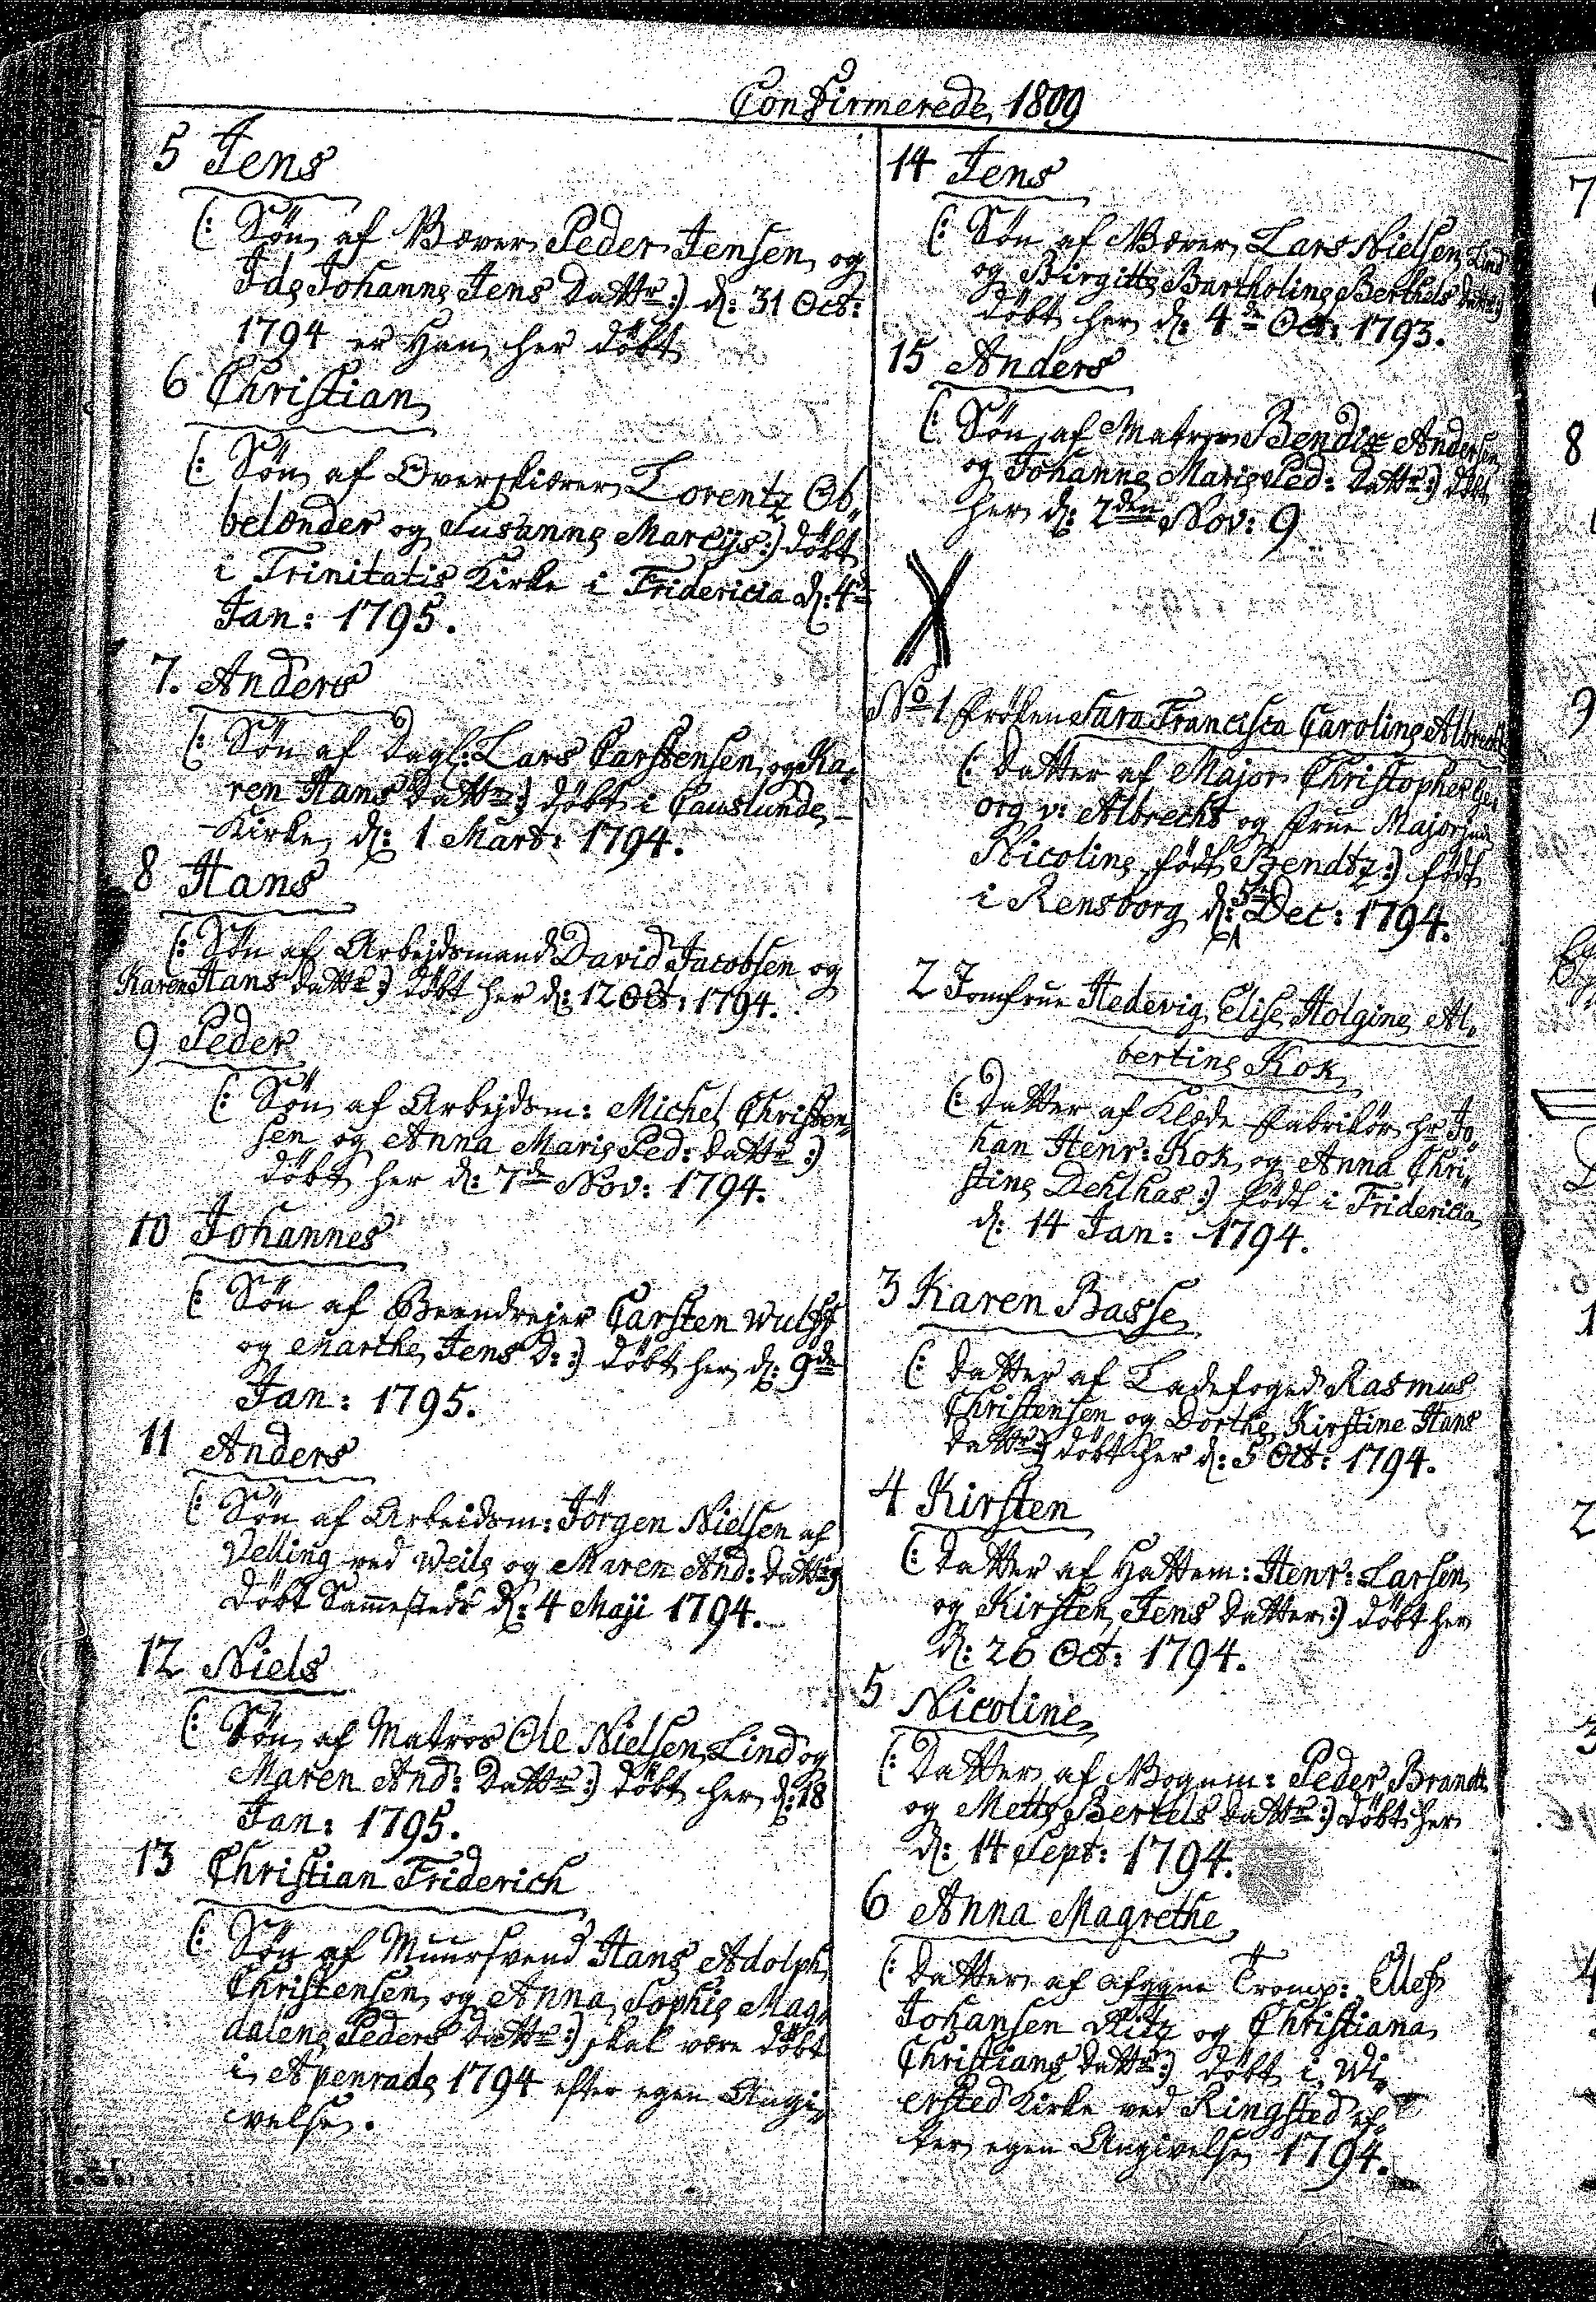 Confirmerede, 1809
5 Jens
(: Søn af Væver Peder Jensen og
Ida Johanne Jens Dattr:) d: 31 Oct:
1794 er Han her døbt
6 Christian
(: Søn af Overskiærer Lorentz Ob„
belønder og Susanne Marcÿs:) døbt
i Trinitatis Kirke i Fridericia d: 4de
Jan: 1795.
7. Anders
(: Søn af Dagl: Lars Carstensen og Ka„
ren Hans Dattr:) døbt i Causlunde
Kirke d: 1 Mart: 1794.
8 Hans
(: Søn af Arbejdsmand David Jacobsen og
Karen Hans Dattr:) døbt her d: 12 Oct: 1794.
9 Peder
(: Søn af Arbejdsm: Michel Christen„
sen og Anna Marie Ped: Dattr:)
døbt her d: 7de Nov: 1794.
10 Johannes
(: Søn af Carsten Wulff
og Marthe Jens D::) døbt her d: 9de
Jan: 1795.
11 Anders
(: Søn af Arbeidsm: Jörgen Nielsen af
Velling ved Weile og Maren And: Dattr:)
døbt Sammesteds d: 4 Maji 1794.
12 Niels
(: Søn af Matros Ole Nielsen Lind og
Maren And: Dattr:) døbt her d: 18
Jan: 1795.
13 Christian Friderich
(: Søn af Muursvend Hans Adolph
Christensen og Anna Sophie Mag„
dalene Peders Dattr:) skal være døbt
i Apenrade 1794 efter egen Angi„
velse.
14 Jens
(: Søn af Væver Lars Nielsen Lind
og Birgitte Bartholine Berthels Dattr:)
døbt her d: 4de Oct: 1793.
15 Anders
(: Søn af Matros Bendix Andersen
og Johanne Marie Ped: Dattr:) døbt
her d: 2den Nov: 9
No 1 Frøken Sara Francisca Caroline Albrecht
(: Datter af Major Christopher Ge„
org v: Albrecht og Frue Majorinde
Nicoline født Bendtz:) født
i Rensborg d: 5te Dec: 1794.
2 Jomfrue Hedevig Elise Holgine Al„
bertine Kok
(: Datter af Klæde Fabrikør Hr Jo„
han Henr: Kok og Anna Chri„
stine Dehlhas:) født i Fridericia
d: 14 Jan: 1794.
3 Karen Basse
(: Datter af Ladefoged Rasmus
Christensen og Dorthe Kirstine Hans
Dattr:) døbt her d: 5 Oct: 1794.
4 Kirsten
(: Datter af Hattem: Henr: Larsen
og Kirsten Jens Datter:) døbt her
d: 26 Oct: 1794.
5 Nicoline
(: Datter af Vognm: Peder Brandt
og Mette Bertels Dattr:) døbt her
d: 14 Sept: 1794.
6 Anna Magrethe
(: Datter af afgangne Tromp:
Johansen Ritz og Christiana
Christians Dattr:) døbt i Wi„
ersted Kirke ved Ringsted ef„
ter egen Angivelse 1794.
7
8
9